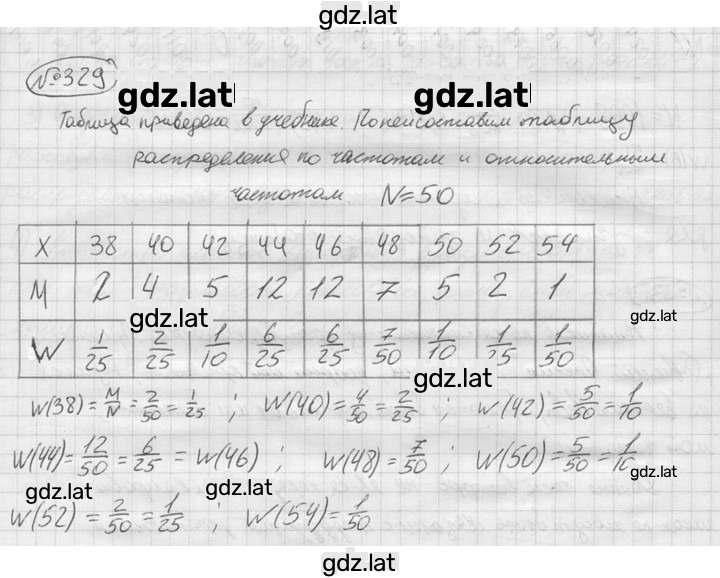 gdz.lat
№329
gdz.lat gdz.lat
Таблица приведена в учебнике. По ней составим таблицу
распределения по частотам и относительным
частотам. N=50
X 38 40 42 44 46 48 50 52 54
M 2 4 5 12 12 7 5 2 1
gdz.lat gdz.lat
W 1/25 2/25 1/10 6/25 6/25 7/50 1/10 1/25 1/50
gdz.lat
W(38)=M/N=2/50=1/25 ; W(40)=4/50=2/25 ; W(42)=5/50=1/10
W(44)=12/50=6/25=W(46) ; W(48)=7/50 ; W(50)=5/50=1/10
gdz.lat gdz.lat gdz.lat
W(52)=2/50=1/25 ; W(54)=1/50
gdz.lat